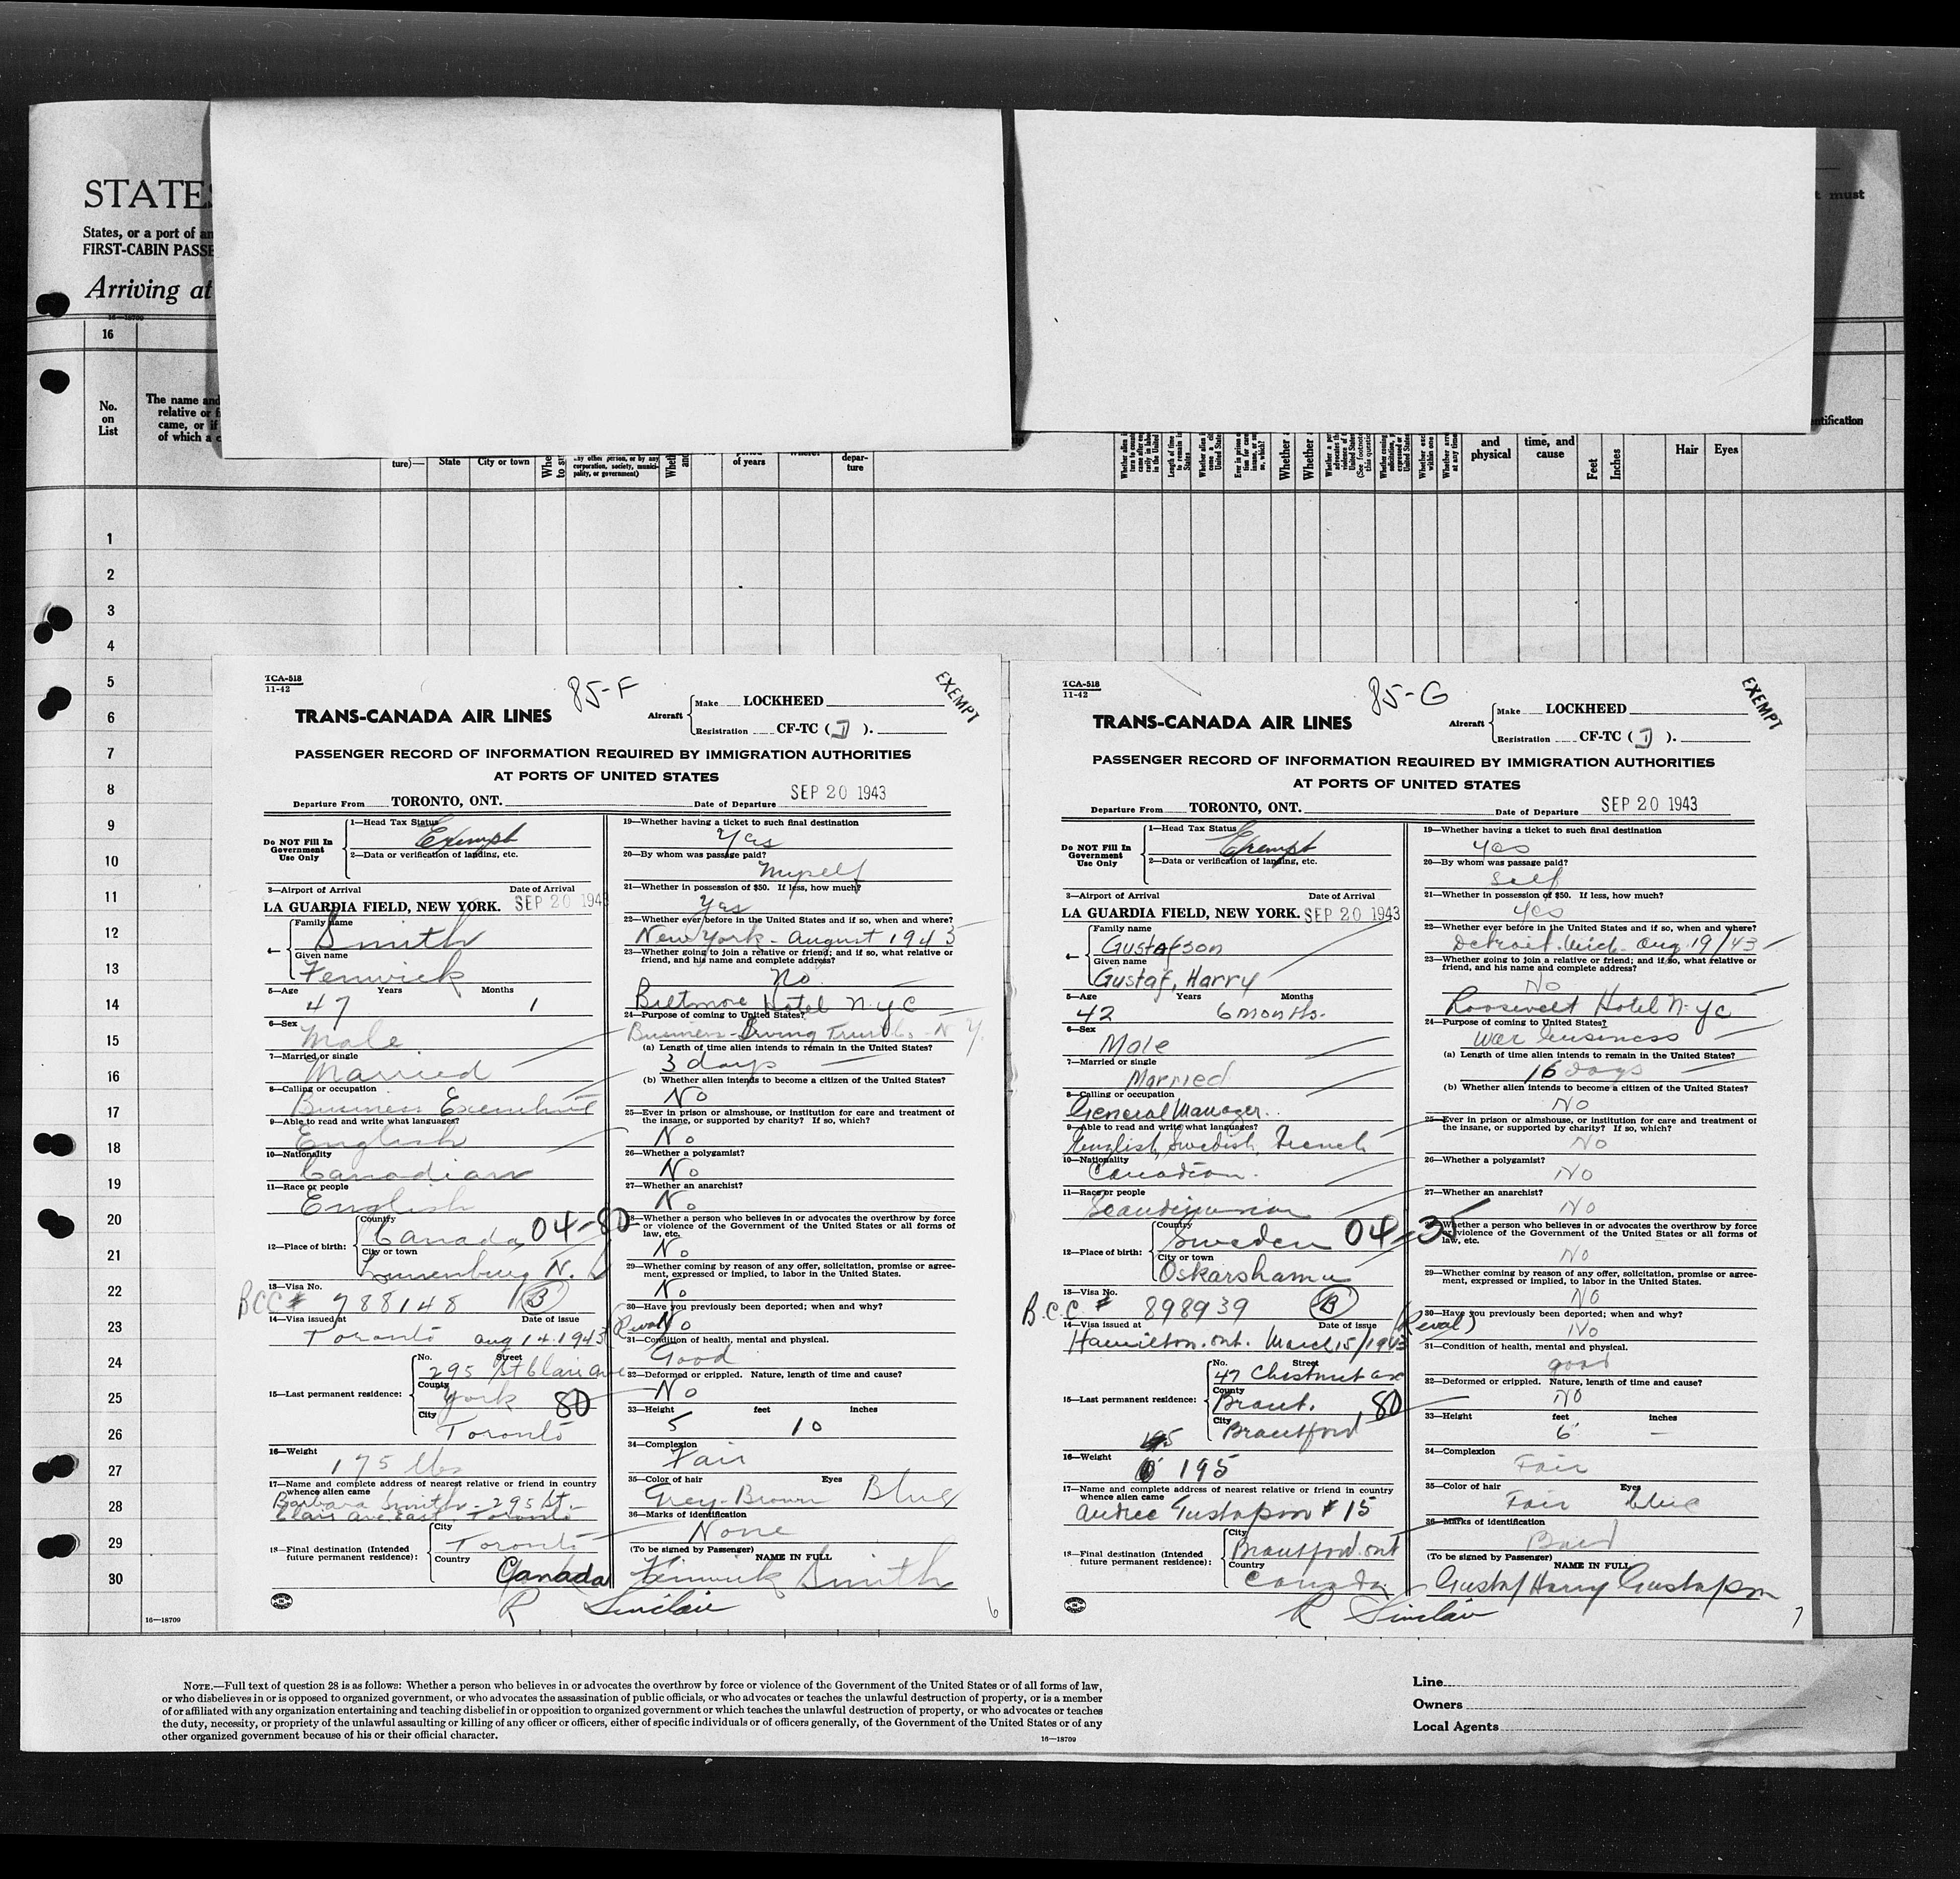 STATES
States, or a port of an
FIRST-CABIN PASSE
Arriving at
t must
16—18709
16
No.
on
List
The name and
relative or f
came, or if
of which a c
ture)—
State
City or town
any other person, or by any
corporation, society, munici-
pality, or government)
of years
depar-
ture
and
physical
time, and
cause
Feet
Inches
ntification
Hair
Eyes
1
2
3
4
5
6
7
8
9
10
11
12
13
14
15
16
17
18
19
20
21
22
23
24
25
26
27
28
29
30
16—18709
TCA-518
11-42
85-F
EXEMPT
TRANS-CANADA AIR LINES
Aircraft
Make LOCKHEED
Registration CF-TC (J).
PASSENGER RECORD OF INFORMATION REQUIRED BY IMMIGRATION AUTHORITIES
AT PORTS OF UNITED STATES
Departure From TORONTO, ONT. Date of Departure SEP 20 1943
Do NOT Fill In
Government
Use Only
1—Head Tax Status Exempt
2—Data or verification of landing, etc.
3—Airport of Arrival Date of Arrival
LA GUARDIA FIELD, NEW YORK. SEP 20 1943
4—
Family name
Smith
Given name
Fenwick
5—Age Years Months
47 1
6—Sex
Male
7—Married or single
Married
8—Calling or occupation
Business Executive
9—Able to read and write what languages?
English
10—Nationality
Canadian
11—Race or people
English
12—Place of birth:
Country
Canada 04-80
City or town
Lunenburg N.S
13—Visa No.
BCC # 788148 (B)
14—Visa issued at Date of issue
Toronto Aug 14.1943 (Reval)
15—Last permanent residence:
No. Street
295 St Clair Ave
County
York 80
City
Toronto
16—Weight
175 lbs
17—Name and complete address of nearest relative or friend in country
whence alien came
Barbara Smith - 295 St-
Clair Ave East. Toronto
18—Final destination (Intended
future permanent residence):
City
Toronto
Country
Canada
R Sinclair
19—Whether having a ticket to such final destination
Yes
20—By whom was passage paid?
Myself
21—Whether in possession of $50. If less, how much?
Yes
22—Whether ever before in the United States and if so, when and where?
New York - August 1943
23—Whether going to join a relative or friend; and if so, what relative or
friend, and his name and complete address?
No
Biltmore Hotel N.Y.C
24—Purpose of coming to United States?
Business - Irving Trust Co. - N.Y.
(a) Length of time alien intends to remain in the United States?
3 days
(b) Whether alien intends to become a citizen of the United States?
No
25—Ever in prison or almshouse, or institution for care and treatment of
the insane, or supported by charity? If so, which?
No
26—Whether a polygamist?
No
27—Whether an anarchist?
No
28—Whether a person who believes in or advocates the overthrow by force
or violence of the Government of the United States or all forms of
law, etc.
No
29—Whether coming by reason of any offer, solicitation, promise or agree-
ment, expressed or implied, to labor in the United States.
No
30—Have you previously been deported; when and why?
No
31—Condition of health, mental and physical.
Good
32—Deformed or crippled. Nature, length of time and cause?
No
33—Height feet inches
5 10
34—Complexion
Fair
35—Color of hair Eyes
Grey-Brown Blue
36—Marks of identification
None
(To be signed by Passenger) NAME IN FULL
Fenwick Smith
6
TCA-518
11-42
85-G
EXEMPT
TRANS-CANADA AIR LINES
Aircraft
Make LOCKHEED
Registration CF-TC (J).
PASSENGER RECORD OF INFORMATION REQUIRED BY IMMIGRATION AUTHORITIES
AT PORTS OF UNITED STATES
Departure From TORONTO, ONT. Date of Departure SEP 20 1943
Do NOT Fill In
Government
Use Only
1—Head Tax Status Exempt
2—Data or verification of landing, etc.
3—Airport of Arrival Date of Arrival
LA GUARDIA FIELD, NEW YORK. SEP 20 1943
4—
Family name
Gustafson
Given name
Gustaf, Harry
5—Age Years Months
42 6 months.
6—Sex
Male
7—Married or single
Married
8—Calling or occupation
General Manager.
9—Able to read and write what languages?
English, Swedish, French
10—Nationality
Canadian.
11—Race or people
Scandinavian
12—Place of birth:
Country
Sweden 04-35
City or town
Oskarshamn
13—Visa No.
B.C.C. # 898939 (B)
14—Visa issued at Date of issue (Reval)
Hamilton. Ont. March 15/1943
15—Last permanent residence:
No. Street
47 Chestnut Ave
County
Brant. 80
City
Brantford
16—Weight
195
17—Name and complete address of nearest relative or friend in country
whence alien came
Andree Gustafson # 15
18—Final destination (Intended
future permanent residence):
City
Brantford. Ont
Country
Canada
R Sinclair
19—Whether having a ticket to such final destination
Yes
20—By whom was passage paid?
Self
21—Whether in possession of $50. If less, how much?
Yes
22—Whether ever before in the United States and if so, when and where?
Detroit. Mich - Aug. 19/43
23—Whether going to join a relative or friend; and if so, what relative or
friend, and his name and complete address?
No
Roosevelt Hotel N.Y.C
24—Purpose of coming to United States?
War business
(a) Length of time alien intends to remain in the United States?
16 days
(b) Whether alien intends to become a citizen of the United States?
No
25—Ever in prison or almshouse, or institution for care and treatment of
the insane, or supported by charity? If so, which?
No
26—Whether a polygamist?
No
27—Whether an anarchist?
No
28—Whether a person who believes in or advocates the overthrow by force
or violence of the Government of the United States or all forms of
law, etc.
No
29—Whether coming by reason of any offer, solicitation, promise or agree-
ment, expressed or implied, to labor in the United States.
No
30—Have you previously been deported; when and why?
No
31—Condition of health, mental and physical.
good
32—Deformed or crippled. Nature, length of time and cause?
No
33—Height feet inches
6' —
34—Complexion
Fair
35—Color of hair Eyes
Fair blue
36—Marks of identification
Bald
(To be signed by Passenger) NAME IN FULL
Gustaf Harry Gustafson
7
NOTE.—Full text of question 28 is as follows: Whether a person who believes in or advocates the overthrow by force or violence of the Government of the United States or of all forms of law,
or who disbelieves in or is opposed to organized government, or who advocates the assassination of public officials, or who advocates or teaches the unlawful destruction of property, or is a member
of or affiliated with any organization entertaining and teaching disbelief in or opposition to organized government or which teaches the unlawful destruction of property, or who advocates or teaches
the duty, necessity, or propriety of the unlawful assaulting or killing of any officer or officers, either of specific individuals or of officers generally, of the Government of the United States or of any
other organized government because of his or their official character.
16—18709
Line
Owners
Local Agents